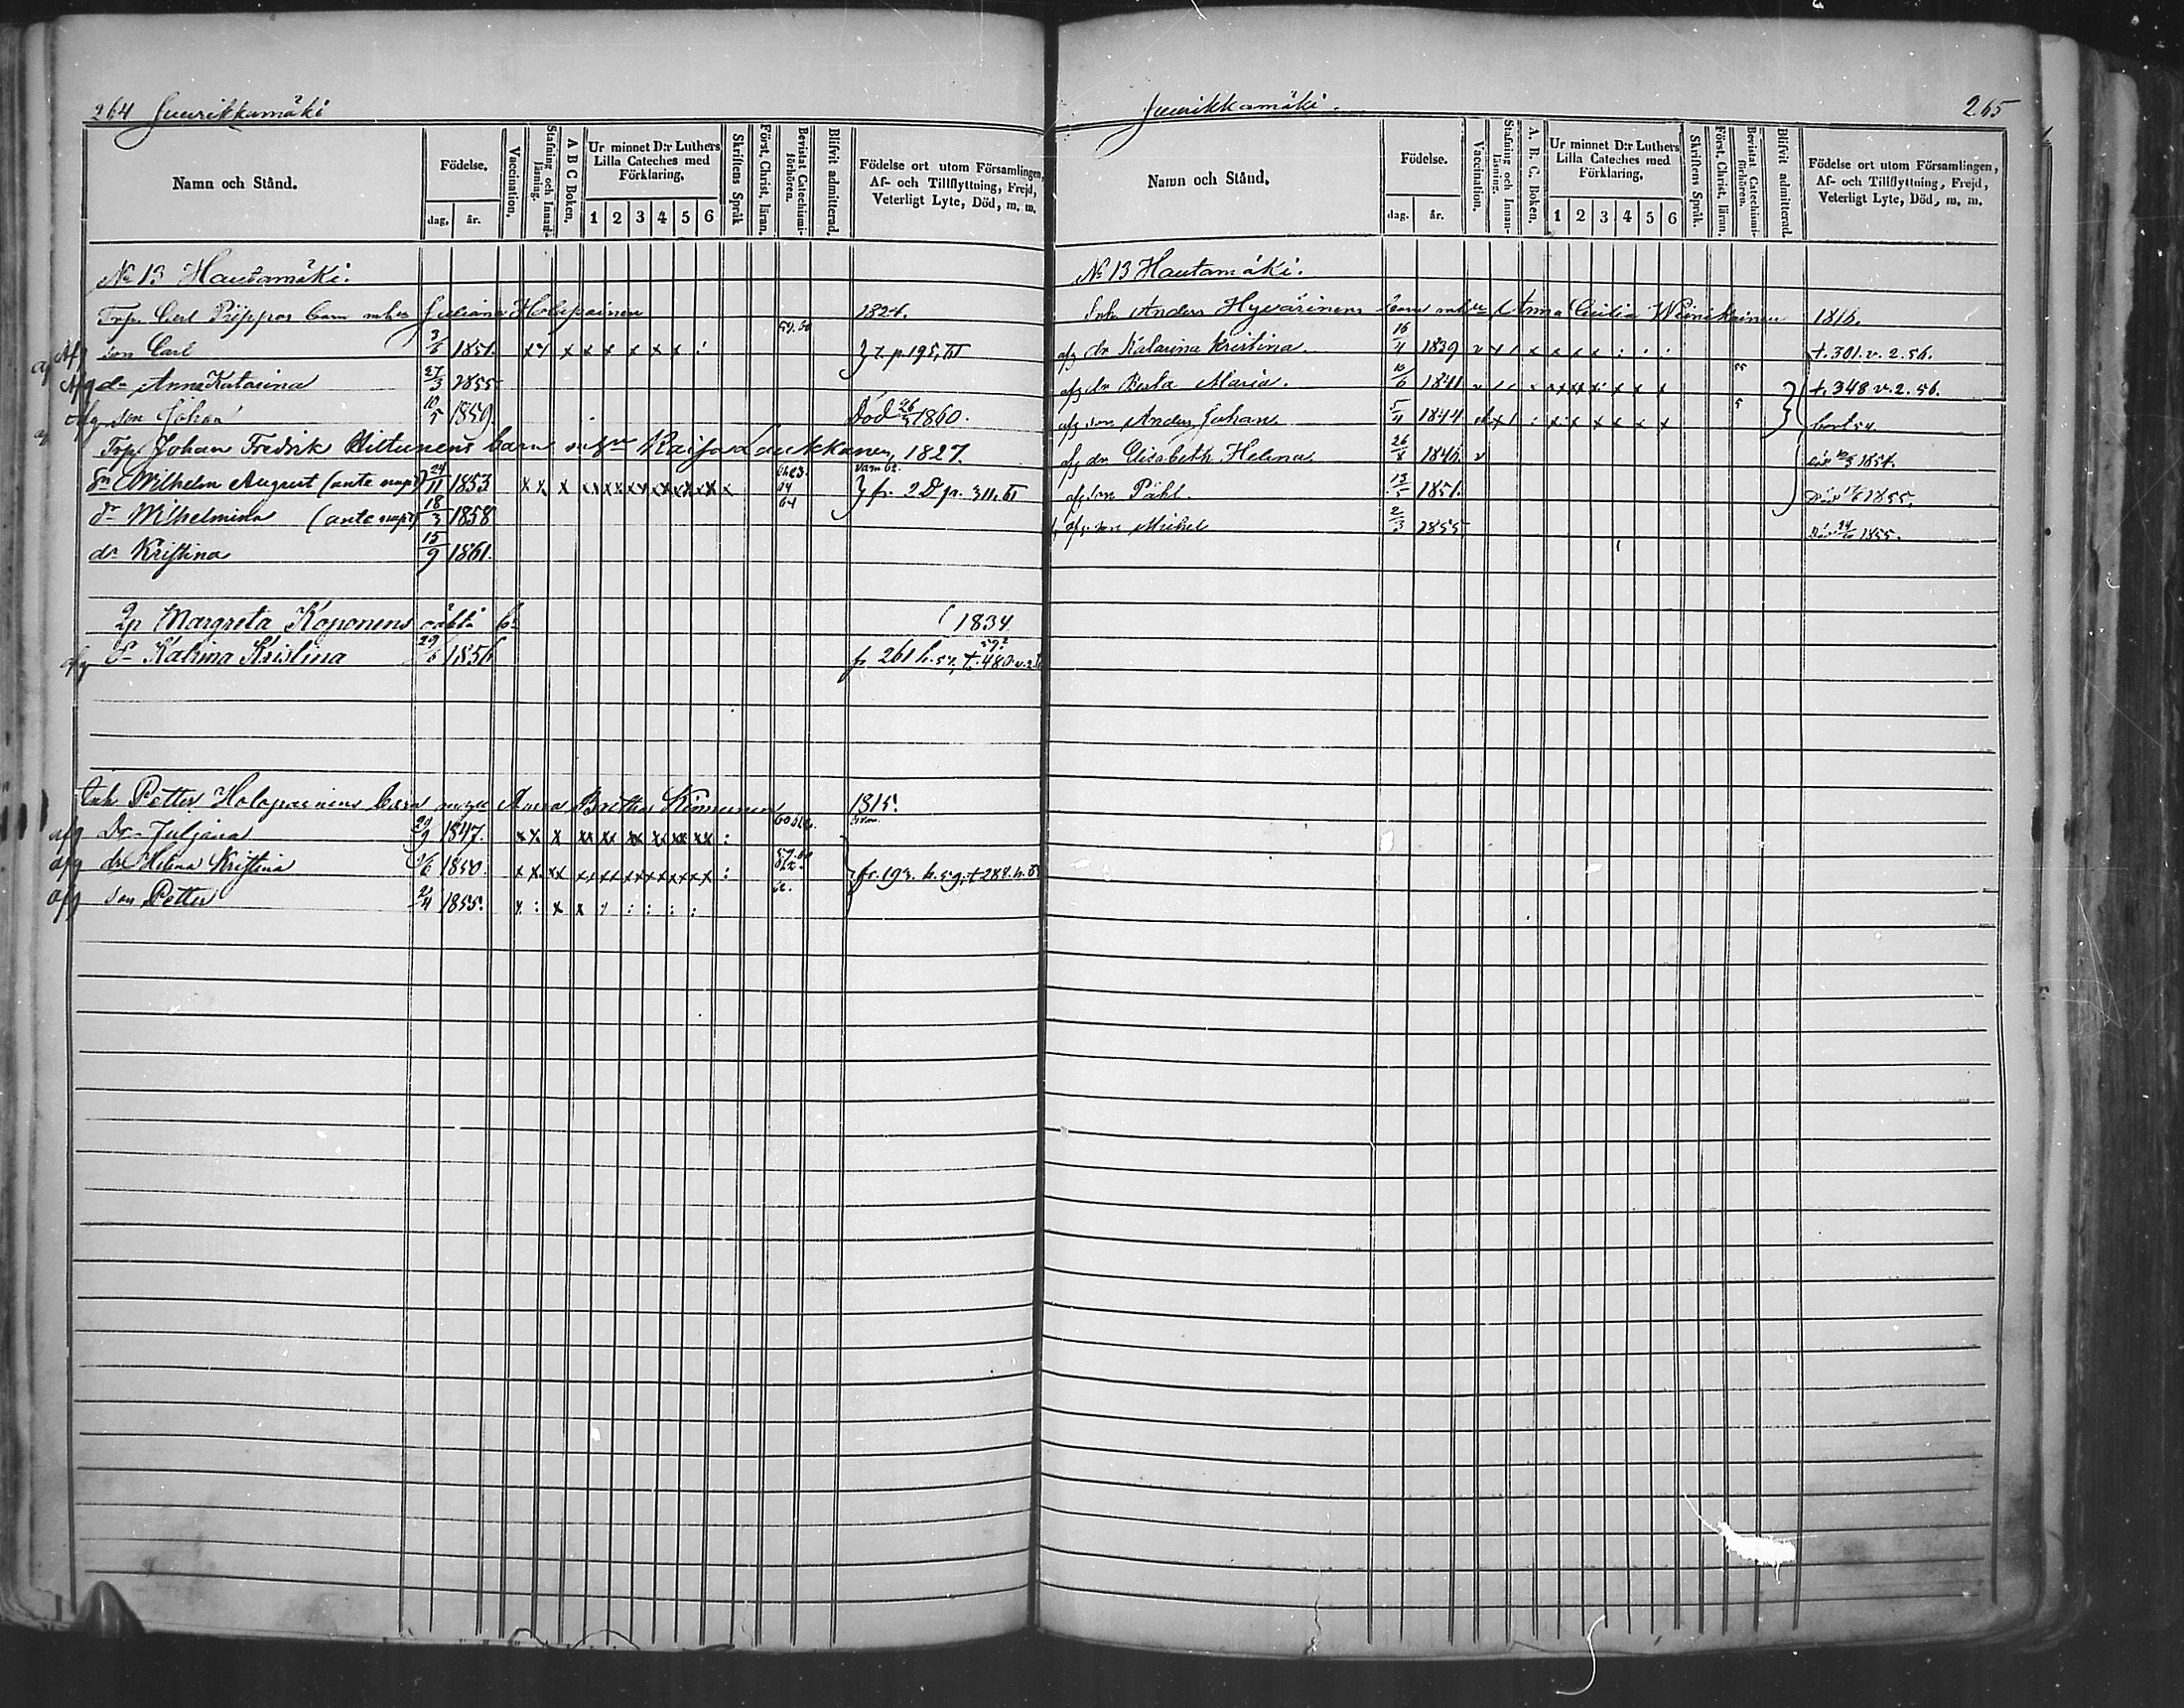 264 Juurikkamäki
Namn och Stånd.
Födelse.
dag. år.
Vaccination.
Stafning och Innanläsning.
A B C Boken.
Ur minnet D:r Luthers Lilla Cateches med Förklaring.
1 2 3 4 5 6
Skriftens Språk
Först. Christ. läran.
Bevistat Catechismiförhören.
Blifvit admitterad.
Födelse ort utom Församlingen, Af- och Tillflyttning, Frejd, Veterligt Lyte, Död, m. m.
No 13 Hautamäki.
Torp. Carl Piippos barn mhu Juliana Holopainen 1824.
Afg son Carl 3/6 1851. 59. 60 } t. p. 195, III
Afg dr Anna Katarina 27/3 1855
Afg son Johan 10/5 1859. Död 26/5 1860.
Torp Johan Fredrik Hiltunens barn Kaisa Laukkanen, 1827.
Sn Wilhelm August (ante nupt) 24/11 1853 } fr. 2 D p. 311. III
dr Wilhelmina (ante nupt) 18/3 1858 64
dr Kristina 15/9 1861.
Lp Margreta Koponens oäkta br 1834
afg dr Katrina Kristina 29/6 1856 fr. 261 h. 57, t. 480 v. 2
Inh Petter Holopainens barn Anna Britha Kinnunen 1815.
afg Dr Juljana 29/9 1847.
afg dr Helena Kristina /6 1850. 59. 60 } fr. 193. h. 59, t 284. h.
afg son Petter 21/4 1855. 62.
Juurikkamäki. 265
Namn och Stånd.
Födelse.
dag. år.
Vaccination.
Stafning och Innanläsning.
A. B. C. Boken.
Ur minnet D:r Luthers Lilla Cateches med Förklaring.
1 2 3 4 5 6
Skriftens Språk.
Först. Christ. läran.
Bevistat Catechismiförhören.
Blifvit admitterad.
Födelse ort utom Församlingen, Af- och Tillflyttning, Frejd, Veterligt Lyte, Död, m. m.
No 13 Hautamäki.
Inh. Anders Hyvärinens barn mhu Anna Cecilia Weinikainen 1816.
afg dr Katarina Kristina. 16/4 1839 t. 301. v. 2. 56.
afg dr Berta Maria. 10/6 1841 55 t. 348 v. 2. 56.
afg son Anders Johan 5/11 1844 5 bort 54
afg dr Elisabeth Helena 26/8 1846. Död 1854.
afg son Påhl 13/5 1851. Död 1855.
afg son Mikel 2/3 1855 Död 24/10 1855.